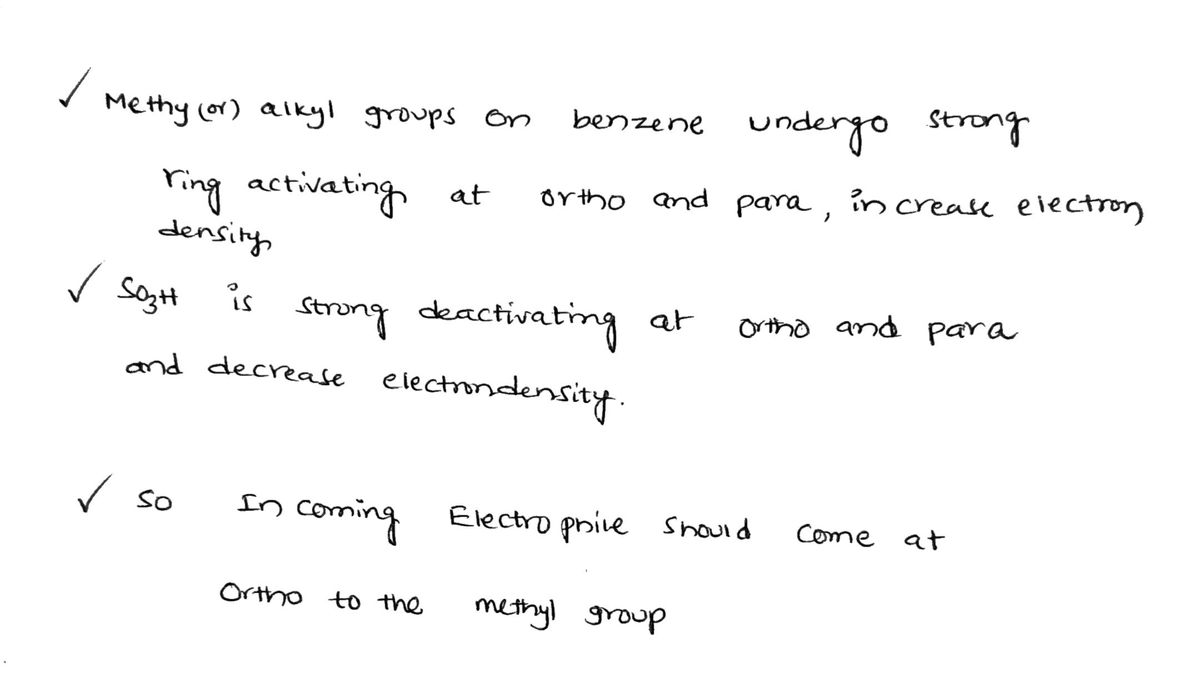 ✓ Methy (or) alkyl groups on benzene undergo strong
ring activating at ortho and para, increase electron
density
✓ SO3H is strong deactivating at ortho and para
and decrease electrondensity.
✓ so Incoming Electrophile should come at
Ortho to the methyl group